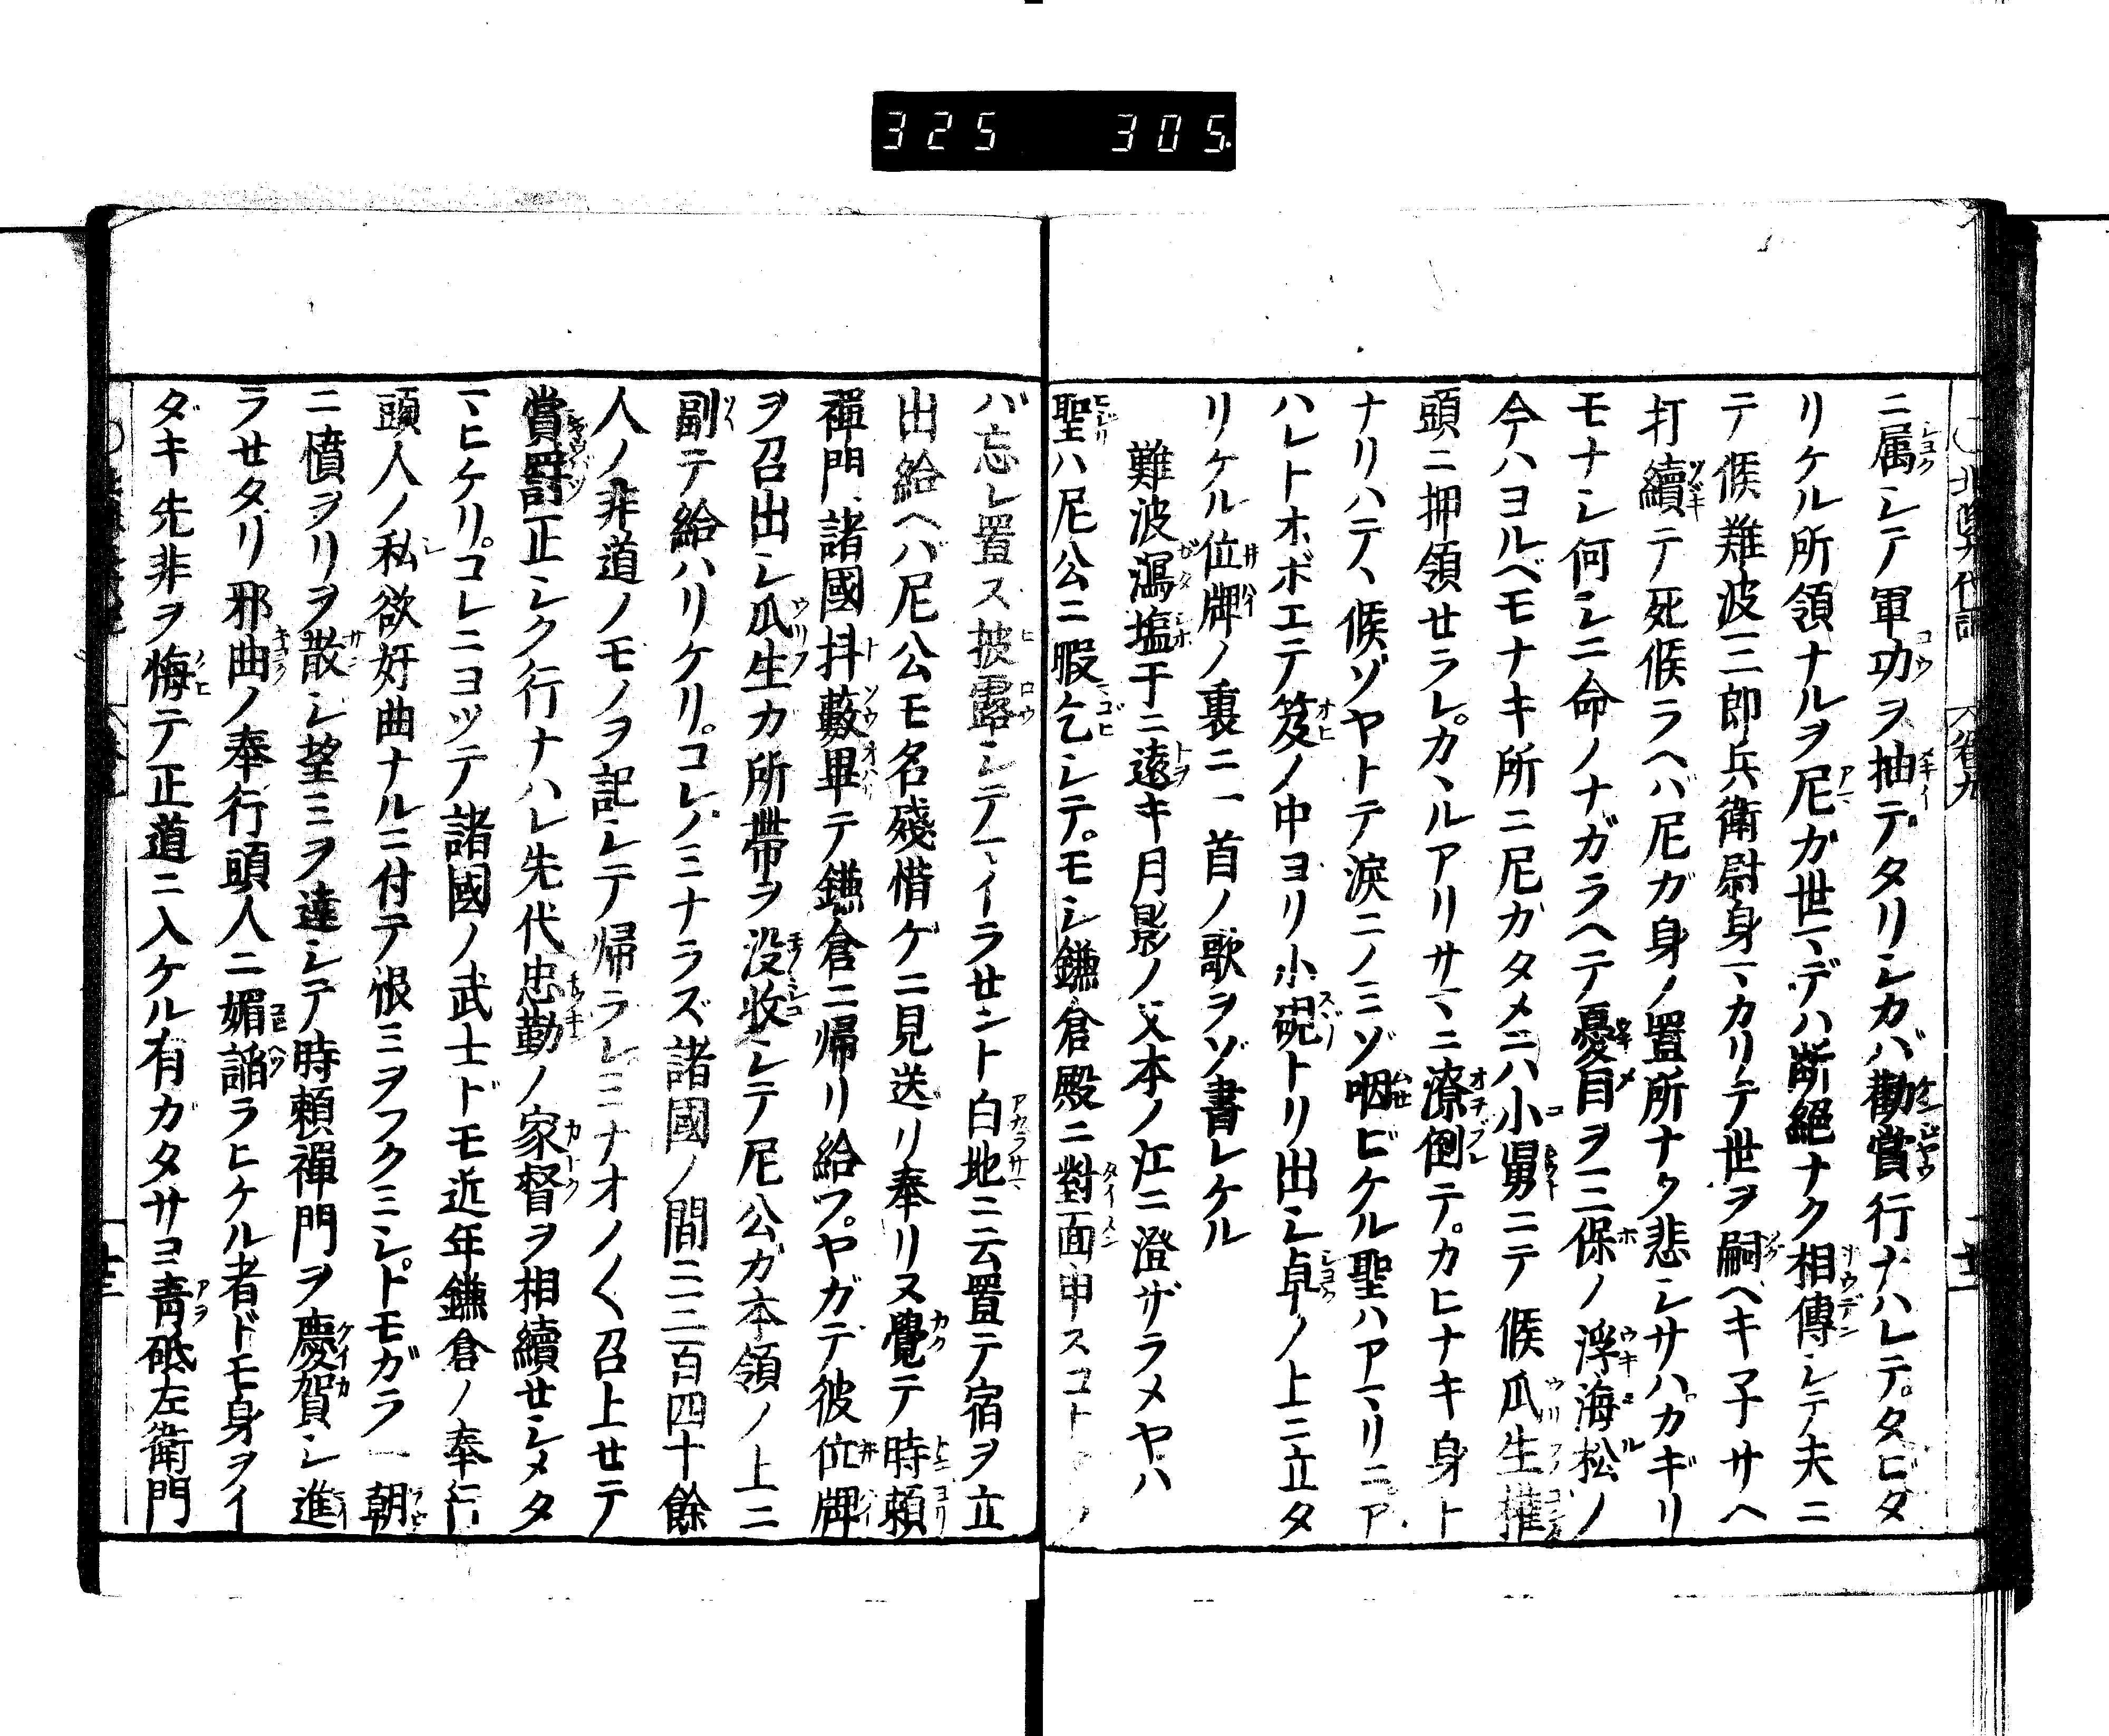 325 305.
ニ属シテ軍功ヲ抽デタリシカバ勸賞行ナハレテ。タビタ
リケル所領ナルヲ尼ガ世マデハ断絶ナク相傳シテ夫ニ
テ候難波三郎兵衛尉身マカリテ世ヲ嗣ベキ子サヘ
打續テ死候ラヘバ尼ガ身ノ置所ナク悲シサハカギリ
モナシ何シニ命ノナガラヘテ憂目ヲ三保ノ浮海松ノ
今ハヨルベモナキ所ニ尼カタメニハ小舅ニテ候瓜生権
頭ニ押領セラレ。カヽルアリサマニ潦倒テ。カヒナキ身ト
ナリハテヽ候ゾヤトテ涙ニノミゾ咽ビケル聖ハアマリニア
ハレトオボエテ笈ノ中ヨリ小硯トリ出シ卓ノ上ニ立タ
リケル位牌ノ裏ニ一首ノ歌ヲゾ書レケル
難波潟塩干ニ遠キ月影ノ又本ノ江ニ澄ザラメヤハ
聖ハ尼公ニ暇乞シテ。モシ鎌倉殿ニ對面申スコト
バ忘レ置ス披露シテマイラセント白地ニ云置テ宿ヲ立
出給ヘバ尼公モ名殘惜ゲニ見送リ奉リヌ覺テ時頼
禪門諸國抖藪畢テ鎌倉ニ帰リ給フ。ヤガテ彼位牌
ヲ召出シ瓜生カ所帯ヲ没收シテ尼公ガ本領ノ上ニ
副テ給ハリケリ。コレノミナラズ諸國ノ間ニ二百四十餘
人ノ非道ノモノヲ記シテ帰ラレミナオノ〱召上セテ
賞罸正シク行ナハレ先代忠勤ノ家督ヲ相續セシメタ
マヒケリ。コレニヨツテ諸國ノ武士ドモ近年鎌倉ノ奉行
頭人ノ私欲奸曲ナルニ付テ恨ミヲフクミシ。トモガラ一朝
ニ憤ヲリヲ散シ望ミヲ達シテ時頼禪門ヲ慶賀シ進
ラセタリ邪曲ノ奉行頭人ニ媚諂ラヒケル者ドモ身ヲイ
ダキ先非ヲ悔テ正道ニ入ケル有ガタサヨ青砥左衛門